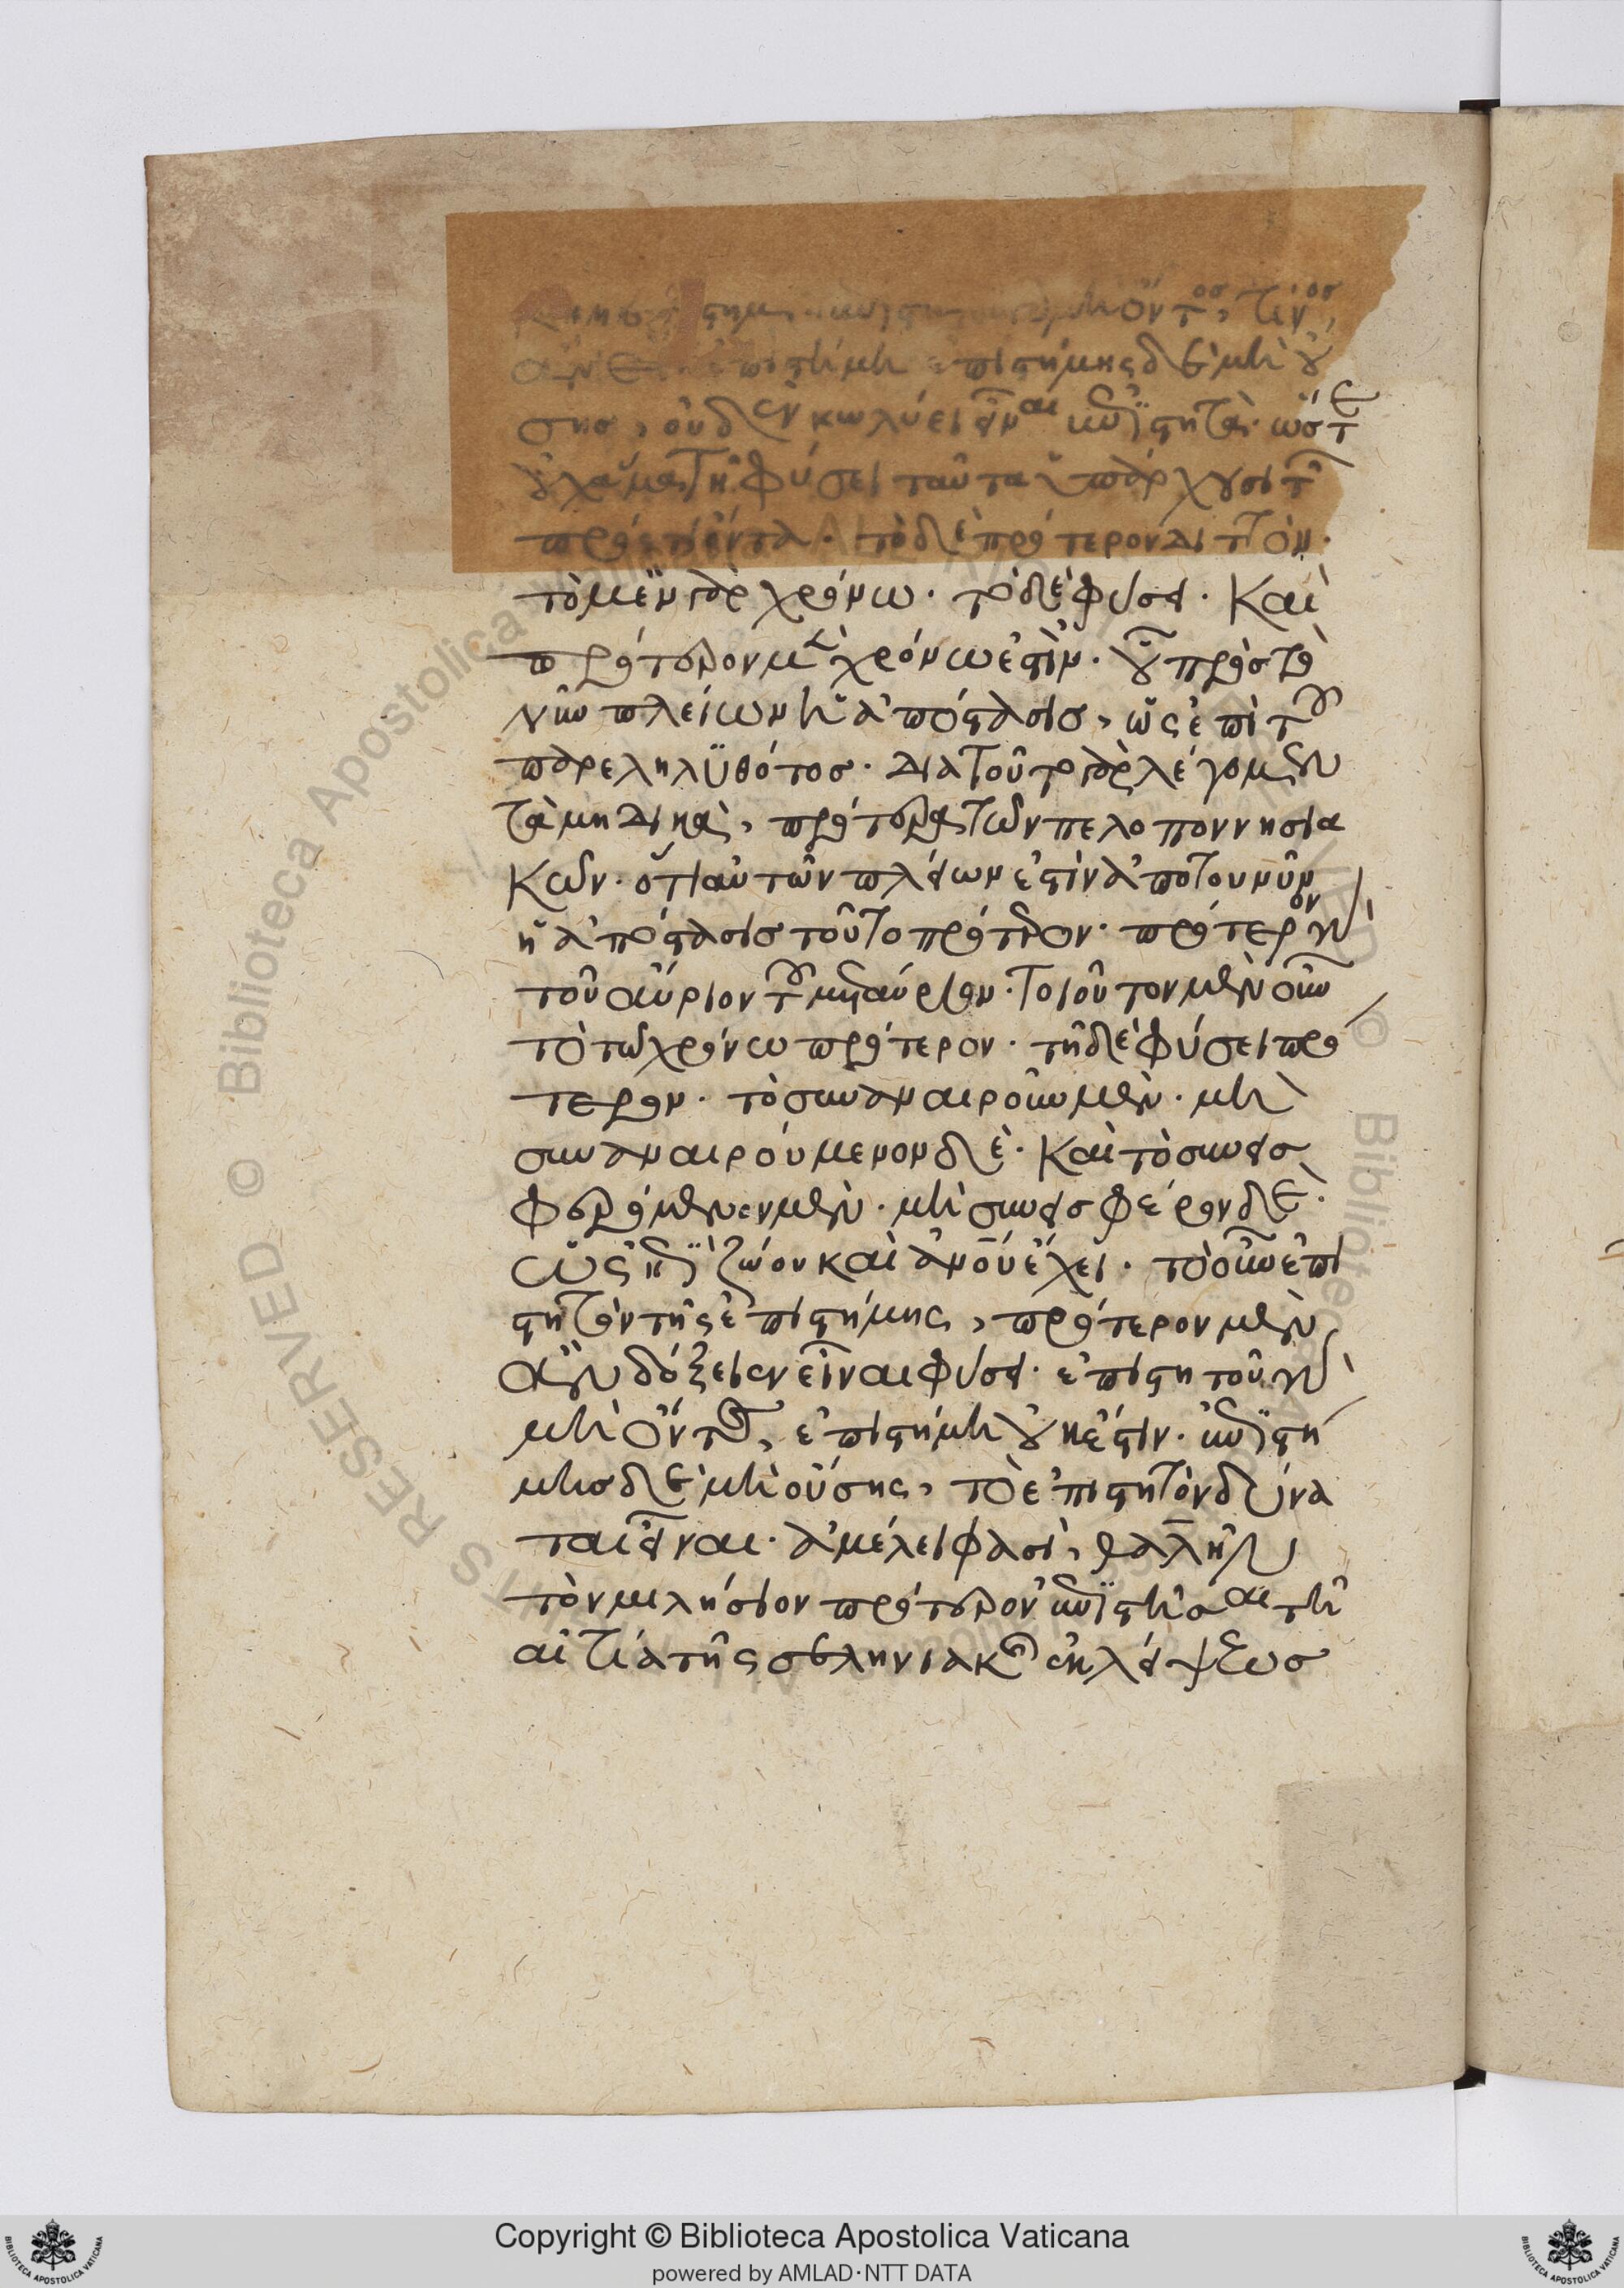 ὄντος, τινος
ἐπιστήμη ἐπιστήμης δὲ μὴ οὔ
σης, οὐδὲν κωλύει εἶναι ἐπιστητά. ὥστε
οὐχ ἅμα τῇ φύσει ταῦτα ὑπάρχουσι τὰ
πρός τι ὄντα. τὸ δὲ πρότερον διττόν.
τὸ μὲν γὰρ χρόνω. τὸ δὲ φύσει. Καὶ
πρότερον μὲν χρόνω ἐστὶν. οὗ πρὸς τὸ
νῦν πλείων ἡ ἀπόστασις, ὡς ἐπὶ τοῦ
παρεληλυθότος. διὰ τοῦτο γὰρ λέγομεν
τὰ μηδικὰ, πρότερα τῶν πελοποννησια
κῶν. ὅτι αὐτῶν πλείων ἐστὶν ἀπὸ τοῦ νῦν
ἡ ἀπόστασις τοῦτο πρότερον. πρότερον γὰρ
τοῦ αὔριον τὸ μεταύριον. τοιοῦτον μὲν οὖν
τὸ τῶ χρόνω πρότερον. τῇ δὲ φύσει πρό
τερον. τὸ συναναιροῦν μὲν. μὴ
συναναιρούμενον δὲ. Καὶ τὸ συνεισ
φερόμενον μὲν. μὴ συνεισφέρον δὲ.
ὡς ἐπὶ ζῶον καὶ ἀνοῦ ἔχει. τὸ οὖν ἐπι
στητὸν τῆς ἐπιστήμης, πρότερον μὲν
ἂν δόξειεν εἶναι φύσει. ἐπιστητοῦ γὰρ
μὴ ὄντος, ἐπιστήμη οὐκ ἔστιν. ἐπιστή
μης δὲ μὴ οὔσης, τὸ ἐπιστητὸν δύνα
ται εἶναι. ἀμέλει φασὶ, θαλῆν
τὸν μιλήσιον πρότερον ἐπιστῆσαι τῇ
αἰτία τῆς σεληνιακῆς ἐκλείψεως
© Biblioteca Apostolica Vaticana
Copyright © Biblioteca Apostolica Vaticana
powered by AMLAD·NTT DATA